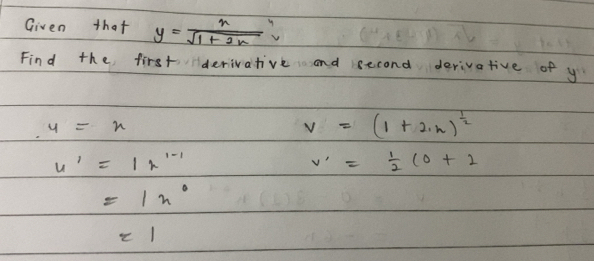 Given that y = n/√(1 + 2n) u v
Find the first derivative and second derivative of y
u = n v = (1 + 2n)^(1/2)
u' = 1n^(1-1) v' = 1/2 (0 + 2
= 1n^0
= 1